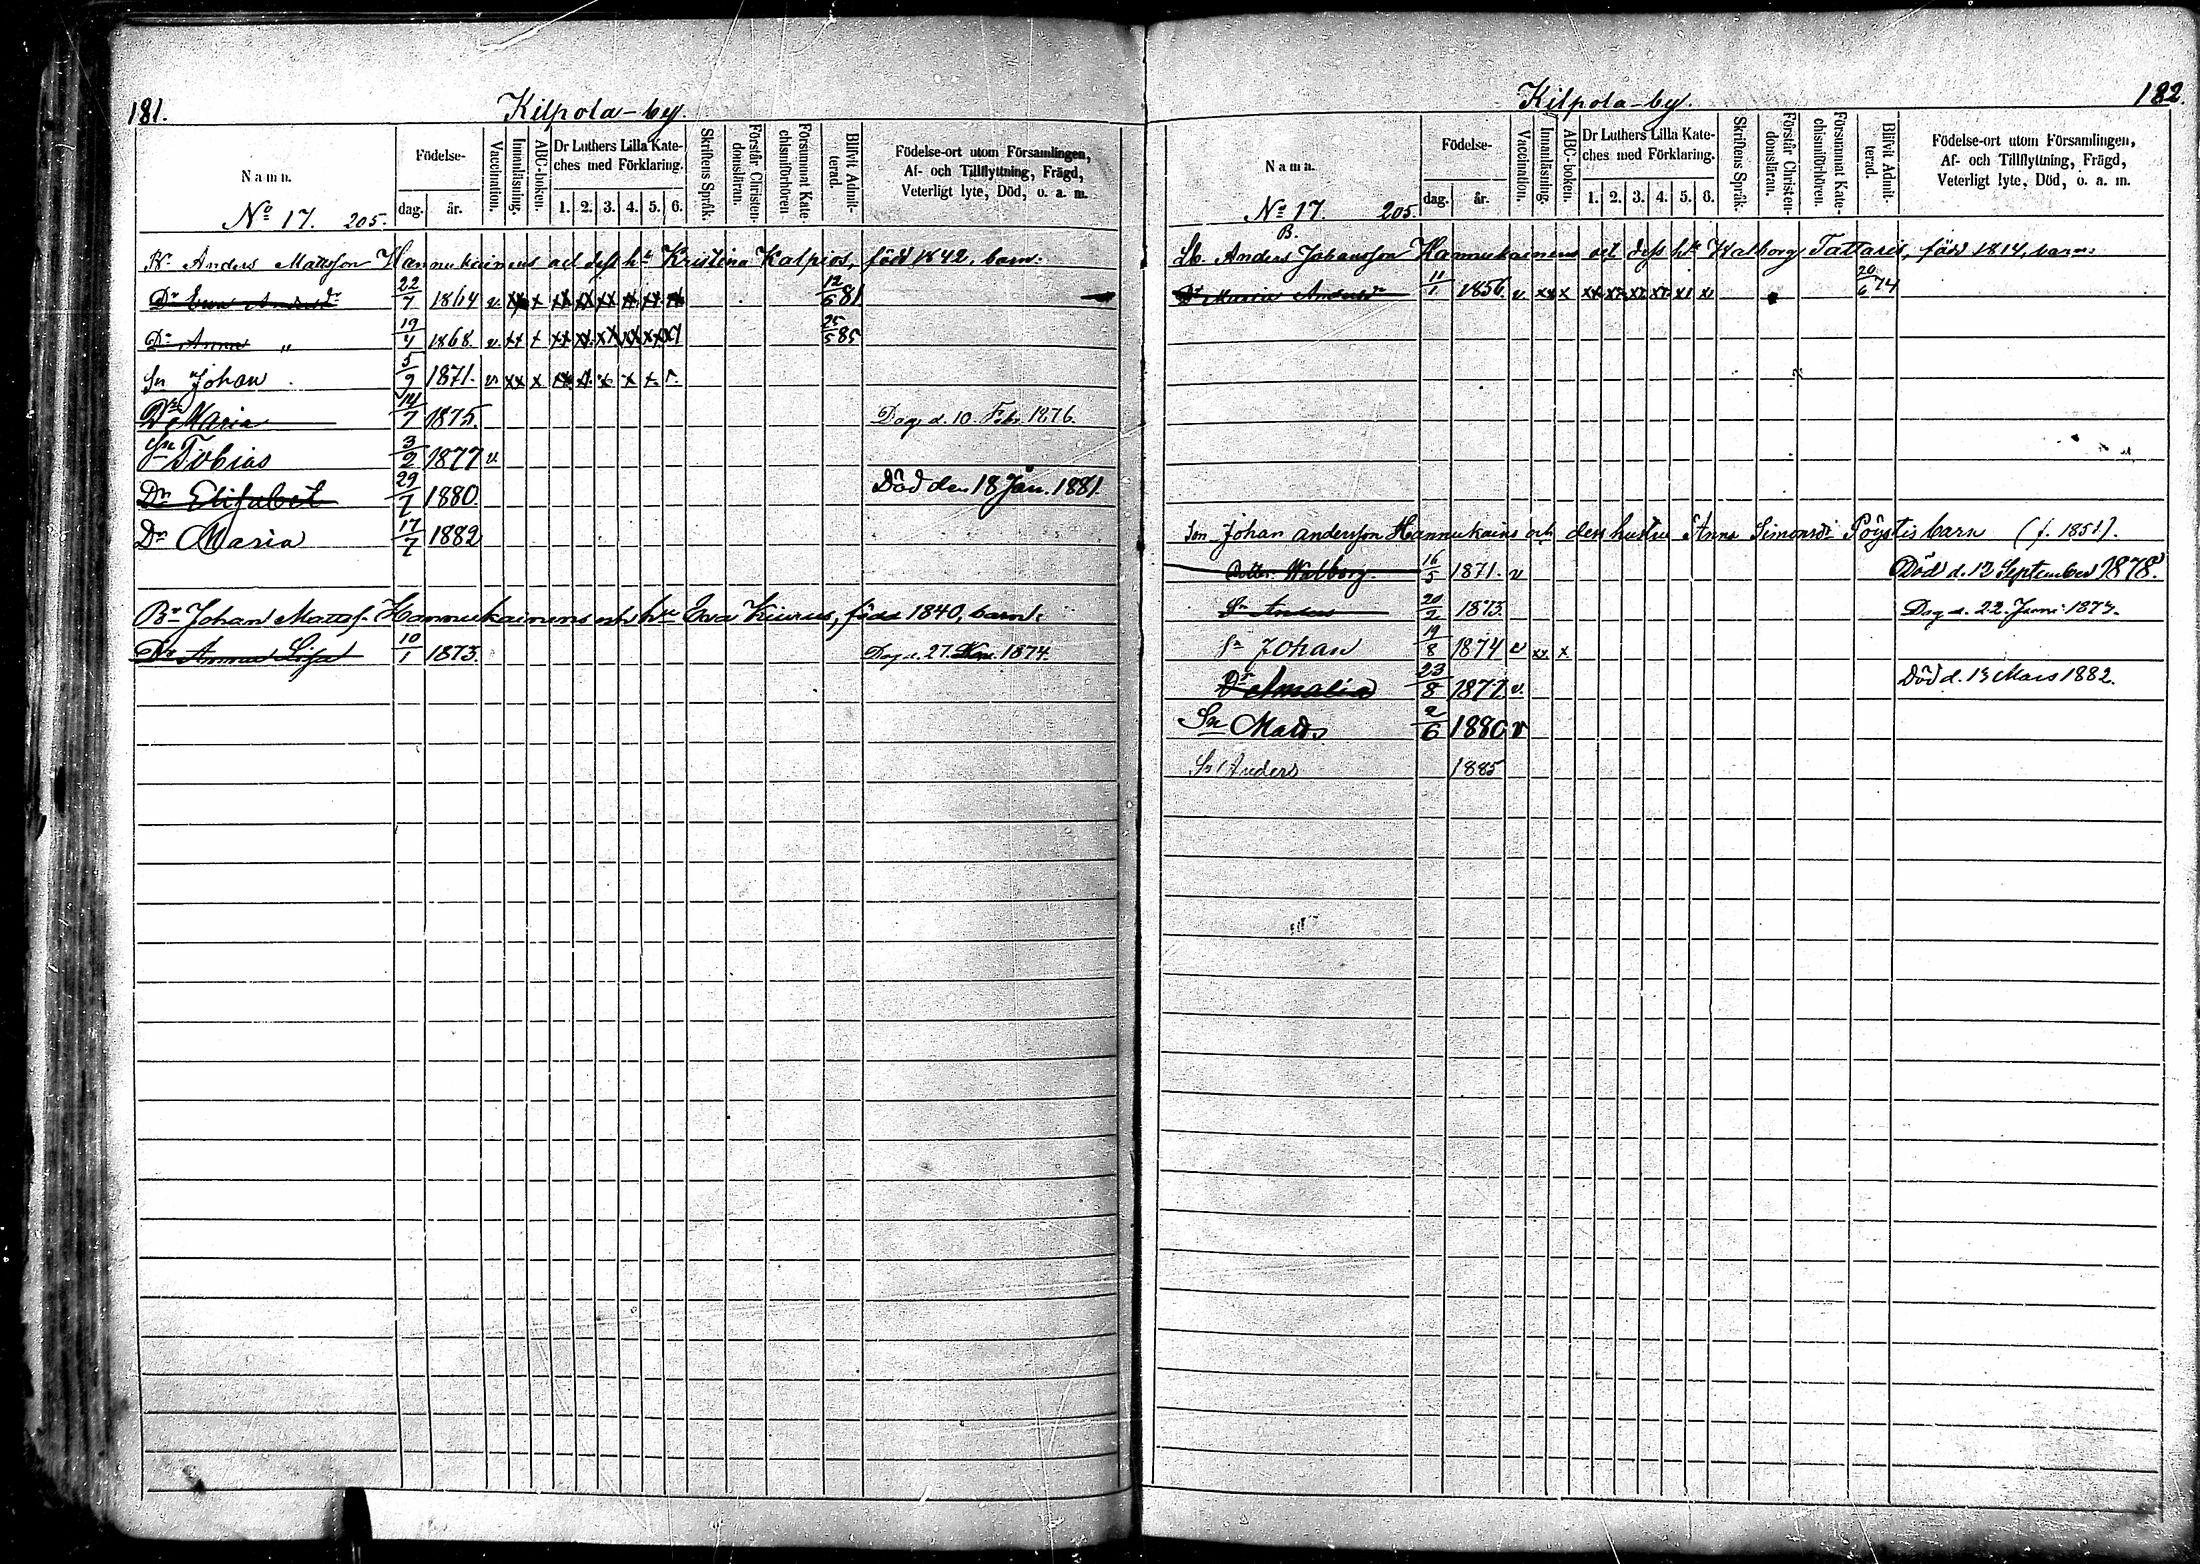 181.
Kilpola-by.
Namn.
Födelse-
dag. år.
Vaccination.
Innanläsning.
ABC-boken.
Dr Luthers Lilla Kate-
ches med Förklaring.
1. 2. 3. 4. 5. 6.
Skriftens Språk.
Förstår Christen-
domsläran.
Försummat Kate-
chismiförhören
Blifvit Admit-
terad.
Födelse-ort utom Församlingen,
Af- och Tillflyttning, Frägd,
Veterligt lyte, Död, o. a. m.
No 17. 205.
Anders Mattsson Hannukainens och dess hu Kristina Kalpios, född 1842, barn:
Dr Eva Andersdr 22/7 1864 v. xx x xx xx xx xx xx 12/6 81
Dr Anna " 19/4 1868 v. xx x xx xx xx xx xx xx 25/5 85
Sn Johan 5/9 1871. v. xx x
Dr Maria 14/7 1875. Dog d. 10 Febr 1876.
Sn Tobias 3/2 1877 v
Dr Elisabet 29/7 1880. Död den 18 Jan. 1881
Dr Maria 17/7 1882
Br Johan Mattss. Hannukainens och hu Eva Kiurus, född 1840, barn:
Dr Anna Lisa 10/1 1873. Dog d. 27. 1874.
182.
Kilpola-by.
Namn.
Födelse-
dag. år.
Vaccination.
Innanläsning.
ABC-boken.
Dr Luthers Lilla Kate-
ches med Förklaring.
1. 2. 3. 4. 5. 6.
Skriftens Språk.
Förstår Christen-
domsläran.
Försummat Kate-
chismiförhören.
Blifvit Admit-
terad.
Födelse-ort utom Församlingen,
Af- och Tillflyttning, Frägd,
Veterligt lyte, Död, o. a. m.
No 17. 205.
B.
Anders Johansson Hannukainens och dess hu Walborg Tattaris, född 1814, barn:
Dr Maria Andersdr 11/1 1856. v. xx x xx xx xx xx xx xx 20/6 74
Son Johan Andersson Hannukains och dess hustru Anna Simonsdr Pöystis barn (f. 1851).
Dotter Walborg. 16/5 1871. v Död d. 12 September 1878.
Sn Anders 20/2 1873. Dog d. 22. Juni 1873.
Sn Johan 19/8 1874 v xx x
Dr Amalia 23/8 1877. v. Död d. 13 Mars 1882.
Sn Mats 2/6 1880 v
Sn Anders 1885